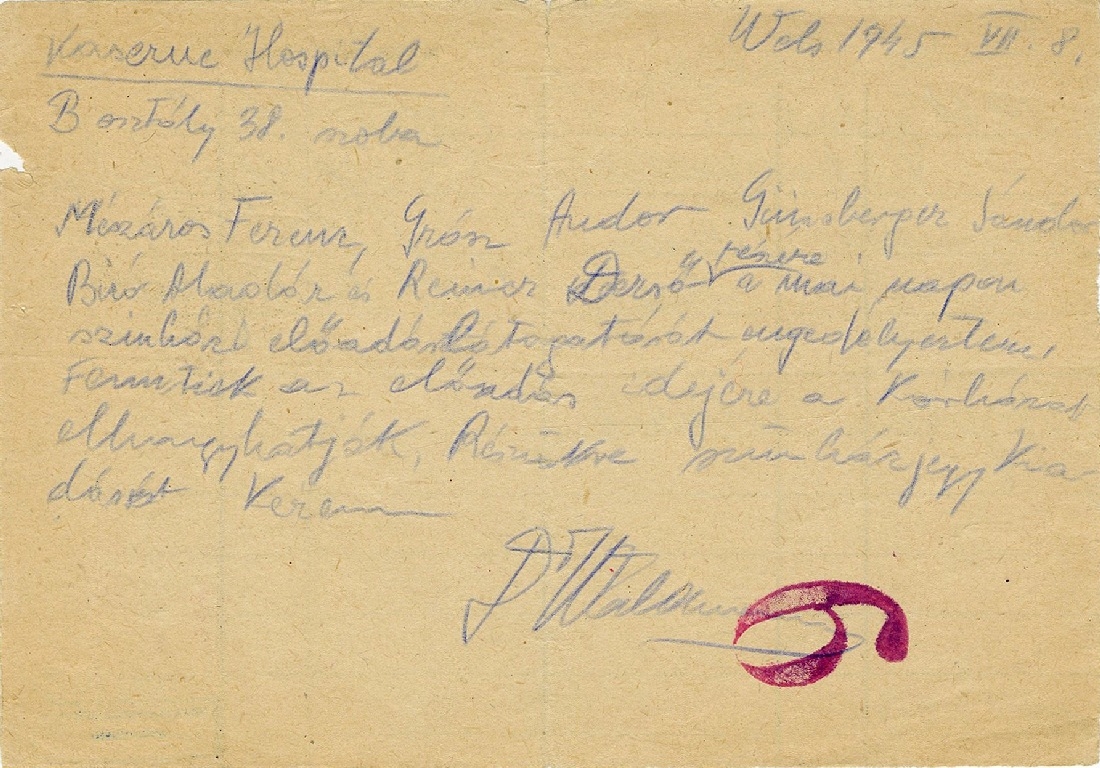 Kaserne Hospital
Wels 1945 VII. 8.
B osztály 38. szoba
Mészáros Ferenc, Grósz Andor Günsberger Sándor
Biró Aladár és Reiner Dezső részére a mai napon
szinházi előadás látogatását engedélyeztem,
Fenntiek az előadás idejére a Kórházat
elhagyhatják, Részükre szinházjegy kia-
dását kérem
Dr